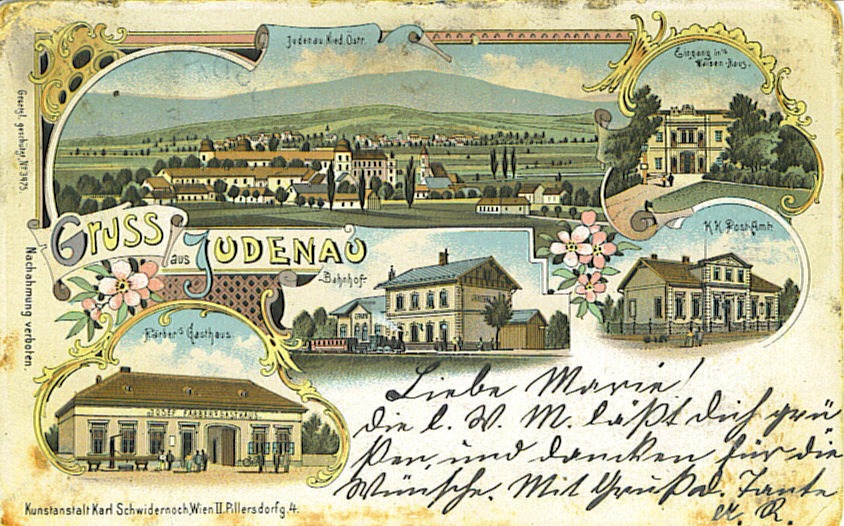 Judenau, Nied. Östr.
Eingang in's
Waisen-Haus.
Gesetzl. geschützt, No 3475.
Nachahmung verboten.
GRUSS aus JUDENAU
K.K. Post-Amt.
Bahnhof
Färber's Gasthaus
JOSEF FÄRBER'S GASTHAUS.
Liebe Marie!
die l. W. M. läßt dich grü
ßen, und danken für die
Wünsche. Mit Gruß d. Tante
Kunstanstalt Karl Schwidernoch, Wien II. Pillersdorfg. 4.